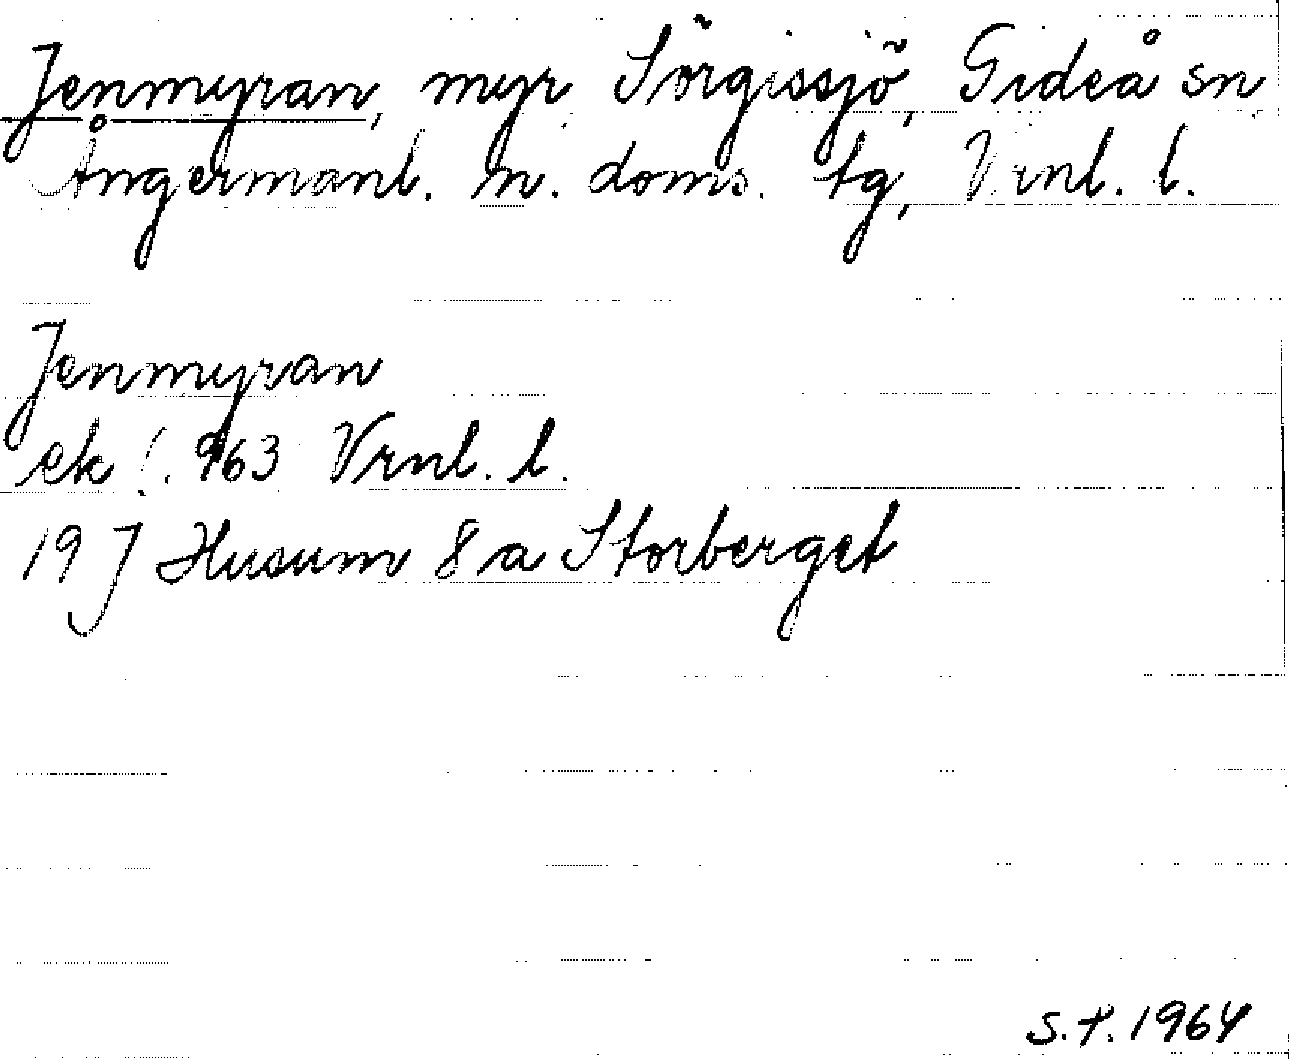 Jenmyran, myr, Sörgissjö, Gideå sn,
Ångermanl. n. doms. tg, Vrnl. l.
Jenmyran
ek 1963 Vrnl. l.
19 J Husum 8 a Storberget
S.P. 1964